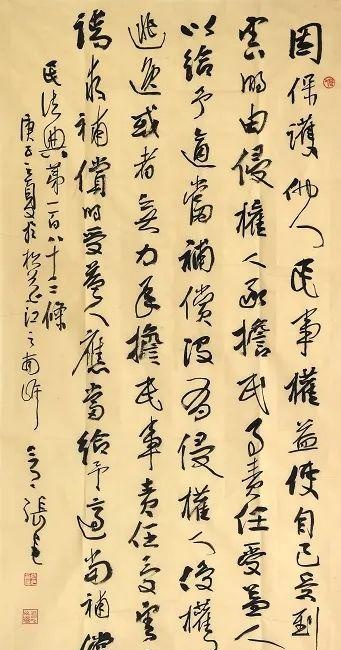 因保護他人民事權益使自己受到
害的由侵權人承擔民事責任受益人
以給予適當補償沒有侵權人侵權
逃逸或者無力承擔民事責任受害
請求補償的受益人應當給予適當補償
民法典第一百八十三條
庚子夏於松花江之南岸 張